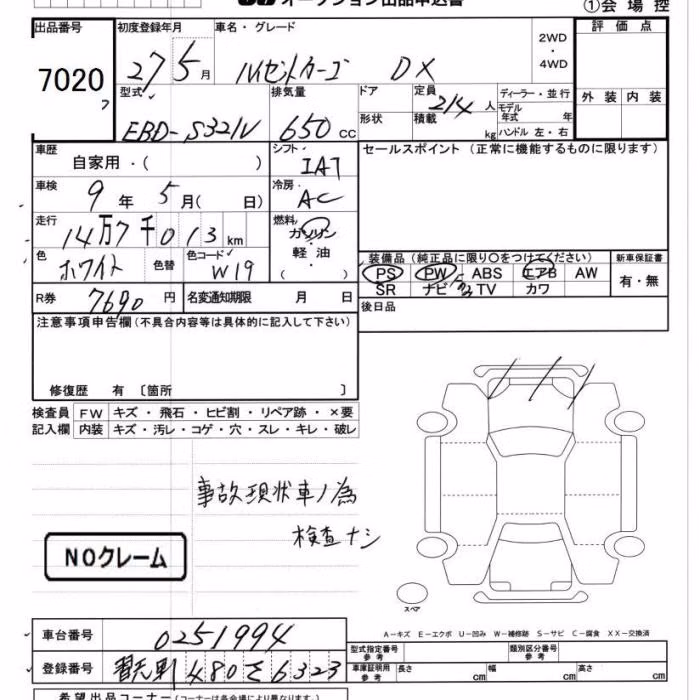 オークション出品申込書 ①会場控
出品番号 初度登録年月 車名・グレード 評価点
7020 27 5月 ハイゼットカーゴ DX 2WD・4WD
7
型式 排気量 ドア 定員 2/4 人 ディーラー・並行 外装 内装
EBD-S321V 650 cc 形状 積載 kg モデル年式 年
ハンドル 左・右
車歴 シフト セールスポイント (正常に機能するものに限ります)
自家用・( ) IAT
車検 9年 5月( 日) 冷房 AC
走行 14万7千013km 燃料 ガソリン・軽油・( )
色 ホワイト 色替 色コード W19
装備品 (純正品に限り○をつけてください) 新車保証書
PS PW ABS エアB AW 有・無
SR ナビ TV カワ
R券 7690円 名変通知期限 月 日 後日品
注意事項申告欄(不具合内容等は具体的に記入して下さい)
修復歴 有 〔箇所 〕
検査員 FW キズ・飛石・ヒビ割・リペア跡・×要
記入欄 内装 キズ・汚レ・コゲ・穴・スレ・キレ・破レ
事故現状車ノ為
検査ナシ
NOクレーム
スペア
A−キズ E−エクボ U−凹み W−補修跡 S−サビ C−腐食 XX−交換済
車台番号 0251994 型式指定番号 参考 類別区分番号 参考
登録番号 習志野 480 さ 6323 車庫証明用 参考 長さ cm 幅 cm 高さ cm
希望出品コーナー(コーナーは各会場により異なります。)